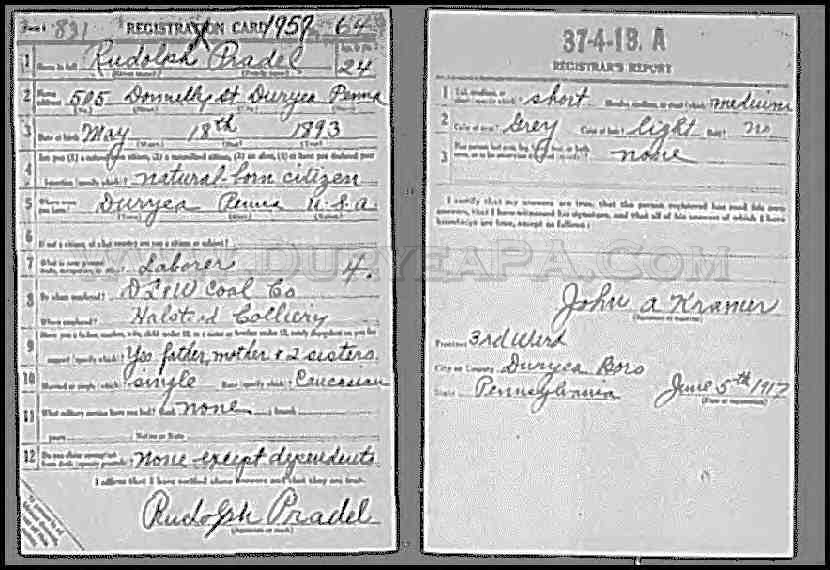 Form 1 821 REGISTRATION CARD 1959 64
1 Name in full Rudolph Pradel Age, in yrs. 24
(Given name) (Family name)
2 Home address 505 Donnelly St Duryea Penna
3 Date of birth May 18th 1893
(Month) (Day) (Year)
4 Are you (1) a natural-born citizen, (2) a naturalized citizen, (3) an alien, (4) or have you declared your
intention (specify which)? natural born citizen
5 Where were you born? Duryea Penna U.S.A
(Town) (State) (Nation)
6 If not a citizen, of what country are you a citizen or subject?
7 What is your present trade, occupation, or office? Laborer 4.
8 By whom employed? DL&W Coal Co
Where employed? Halstead Colliery
9 Have you a father, mother, wife, child under 12, or a sister or brother under 12, solely dependent on you for
support (specify which)? Yes father, mother & 2 sisters.
10 Married or single (which)? single Race (specify which)? Caucasian
11 What military service have you had? Rank none branch
years Nation or State
12 Do you claim exemption from draft (specify grounds)? None except dependents
I affirm that I have verified above answers and that they are true.
Rudolph Pradel
(Signature or mark)
37-4-1B. A
REGISTRAR'S REPORT
1 Tall, medium, or short (specify which)? short Slender, medium, or stout (which)? medium
2 Color of eyes? Grey Color of hair? light Bald? no
3 Has person lost arm, leg, hand, foot, or both eyes, or is he otherwise disabled (specify)? none
I certify that my answers are true, that the person registered has read his own
answers, that I have witnessed his signature, and that all of his answers of which I have
knowledge are true, except as follows:
John A Kramer
(Signature of registrar)
Precinct 3rd Ward
City or County Duryea Boro
State Pennsylvania June 5th 1917
(Date of registration)
WWW.DURYEAPA.COM